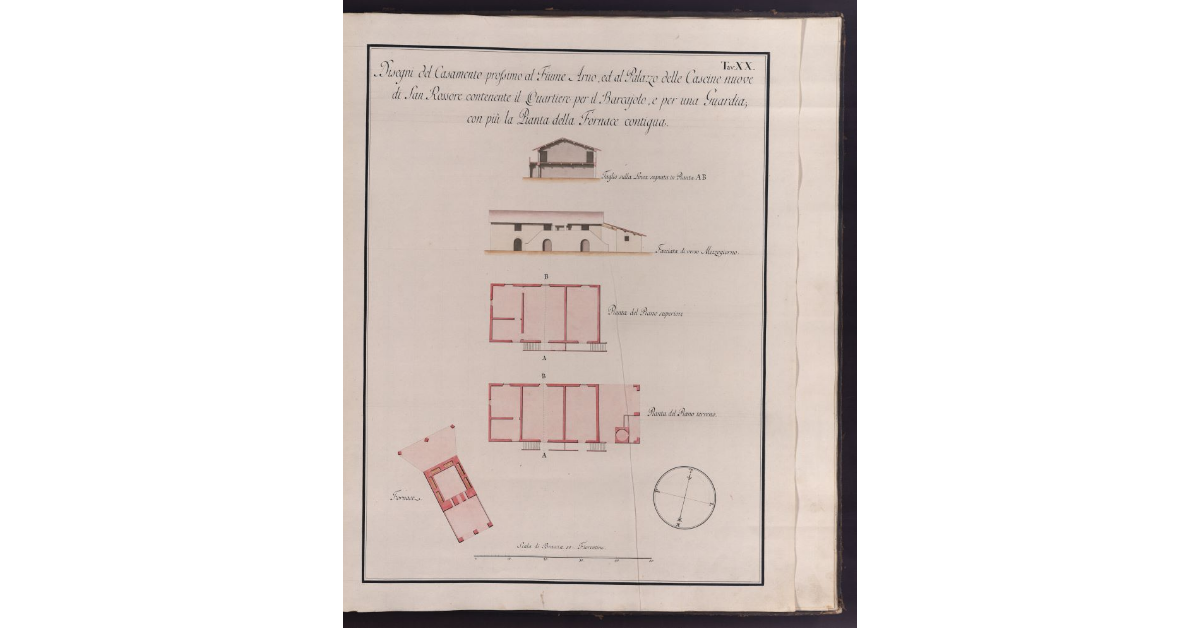 Tav. XX.
Disegni del Casamento prossimo al Fiume Arno, ed al Palazzo delle Cascine nuove
di San Rossore contenente il Quartiere per il Barcajolo, e per una Guardia;
con più la Pianta della Fornace contigua.
Taglio sulla Linea segnata in Pianta AB
Facciata di verso Mezzogiorno.
B
Pianta del Piano superiore
A
B
Pianta del Piano terreno.
A
Fornace.
Scala di Braccia Fiorentine.